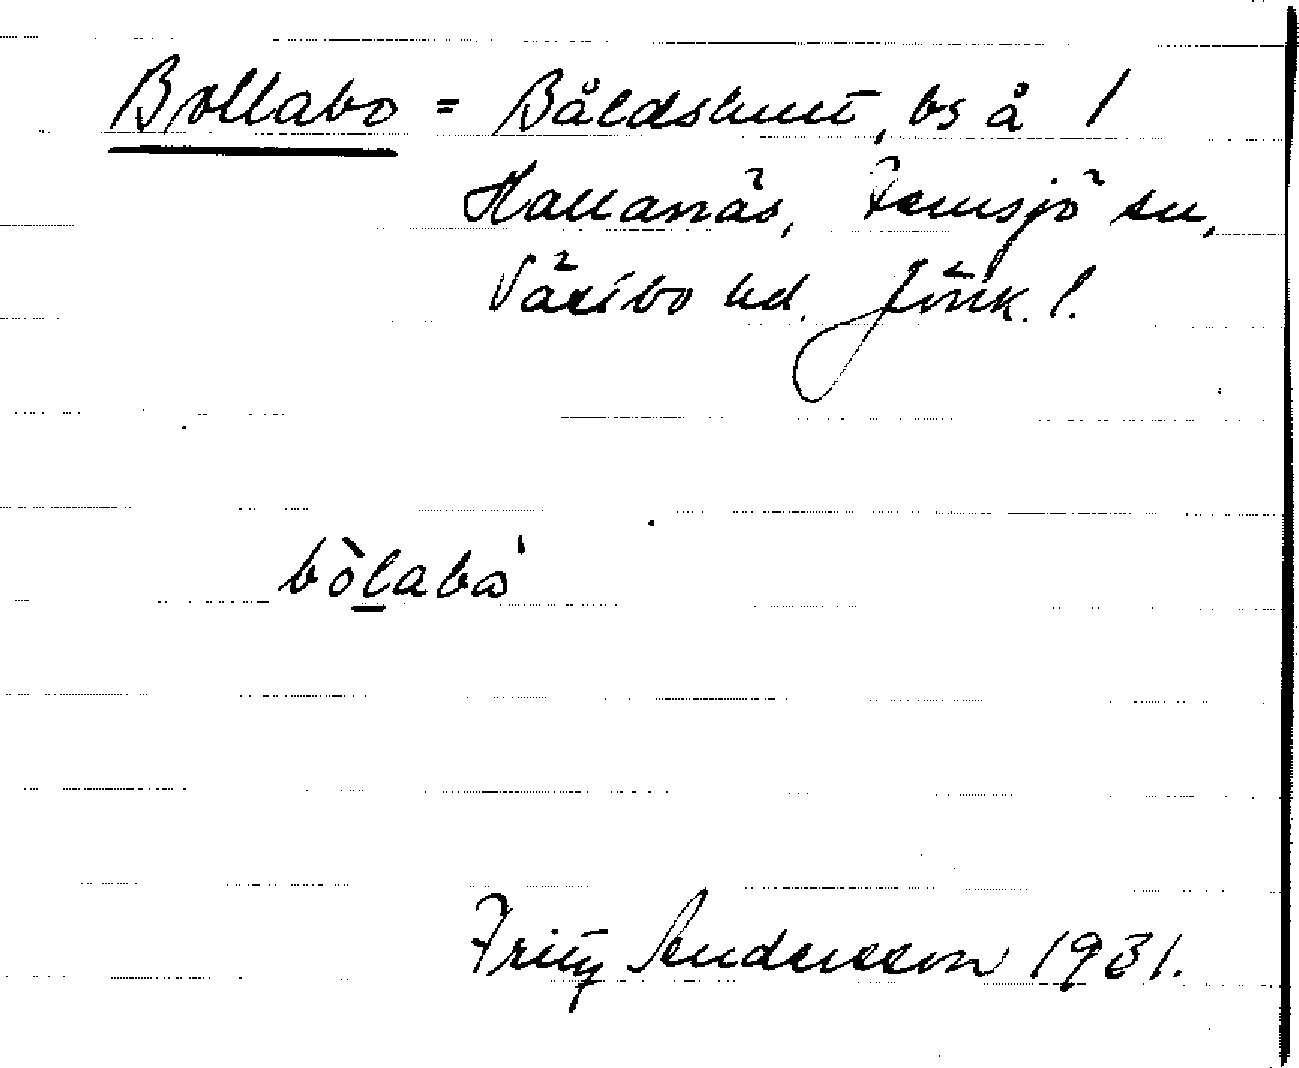 Bollabo = Båldshult, bs å 1
Hallanäs, Femsjö sn,
Västbo hd. Jönk. l.
bòlabo'
Fritz Andersson 1931.